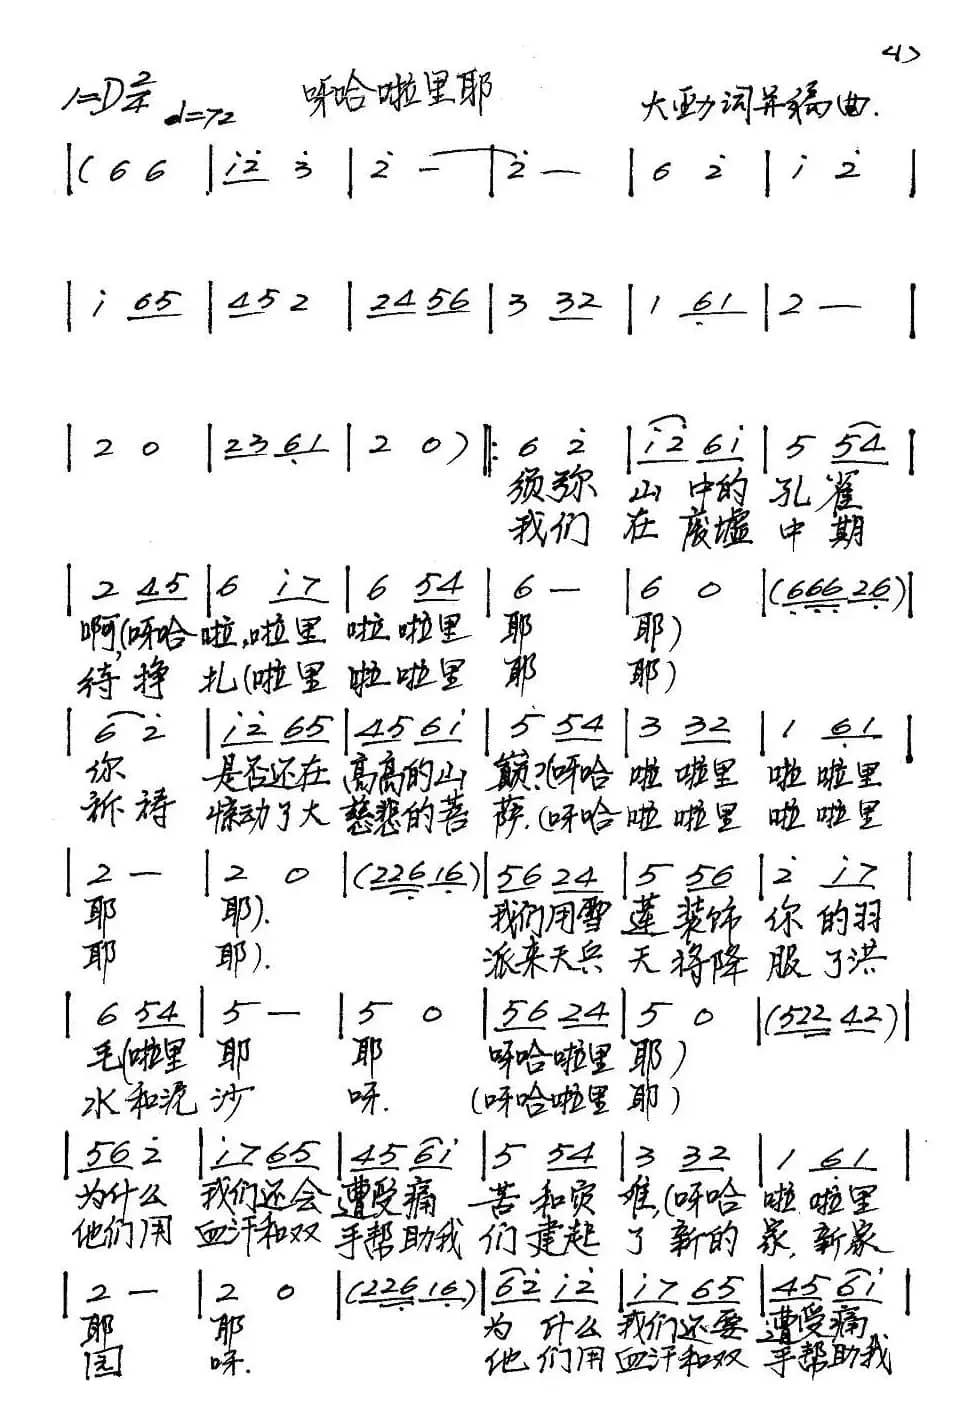 <1>
1=D 2/4 d=72 呀哈啦里耶 大勐词并编曲.
|(6 6 |i̇2̇ 3̇ |2̇ - |2̇ - |6 2̇ |i̇ 2̇ |
|i̇ 65 |45 2 |24 56 |3 32 |1 6̣1 |2 - |
|2 0 |23 6̣1 |2 0) |: 6 2̇ |i̇2̇ 6i̇ |5 54 |
须弥 山 中的 孔 雀
我们 在 废墟 中 期
|2 45 |6 i̇7 |6 54 |6 - |6 0 |(6̣6̣6̣ 26̣)|
啊,(呀哈 啦,啦里 啦 啦里 耶 耶)
待 挣 扎(啦里 啦 啦里 耶 耶)
|6 2̇ |i̇2̇ 65 |45 6i̇ |5 54 |3 32 |1 6̣1 |
你 是否还在 高高的山 巅?(呀哈 啦 啦里 啦 啦里
祈祷 惊动了大 慈悲的菩 萨.(呀哈 啦 啦里 啦 啦里
|2 - |2 0 |(226̣ 16̣)|56 24 |5 56 |2̇ i̇7 |
耶 耶). 我们用雪 莲 装饰 你 的羽
耶 耶). 派来天兵 天 将降 服 了洪
|6 54 |5 - |5 0 |56 24 |5 0 |(522 42)|
毛(啦里 耶 耶 呀哈啦里 耶)
水 和泥 沙 呀. (呀哈啦里 耶)
|56 2̇ |i̇7 65 |45 6i̇ |5 54 |3 32 |1 6̣1 |
为什么 我们还会 遭受痛 苦 和灾 难,(呀哈 啦 啦里
他们用 血汗和双 手帮助我 们 建起 了 新的 家, 新家
|2 - |2 0 |(226̣ 16̣)|62̇ i̇2̇ |i̇7 65 |45 6i̇ |
耶 耶 为 什么 我们还要 遭受痛
园 呀. 他 们用 血汗和双 手帮助我